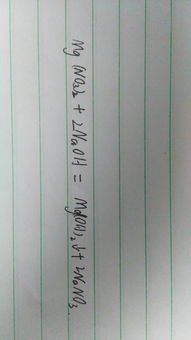 Mg(NO₃)₂ + 2NaOH = Mg(OH)₂↓ + 2NaNO₃.